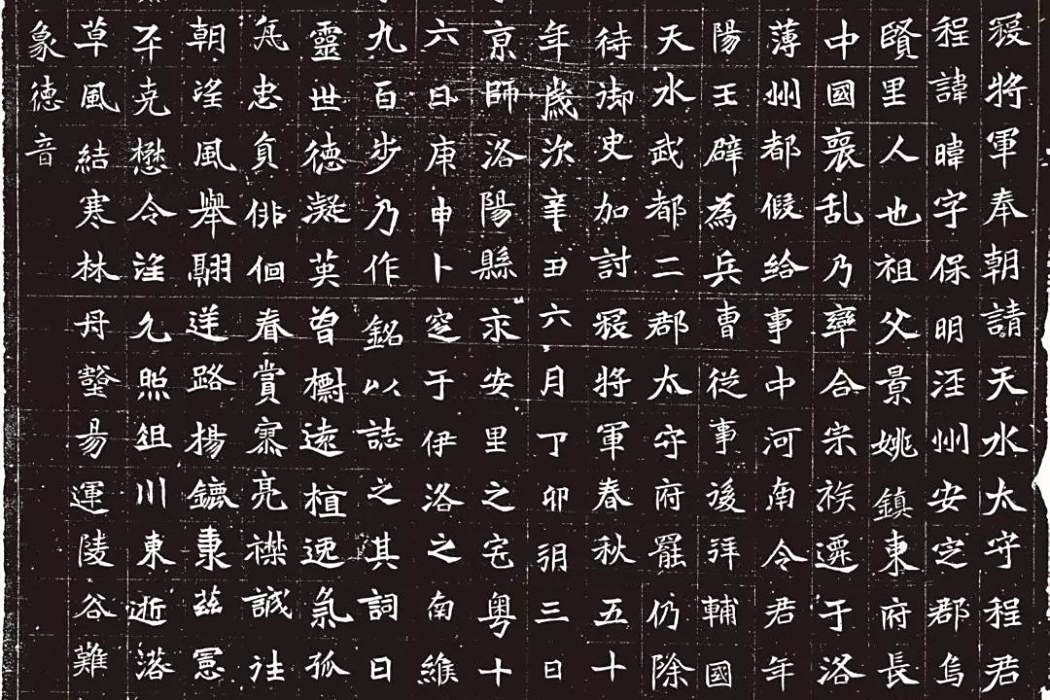 寇將軍奉朝請天水太守程君
程諱暐字保明涇州安定郡烏
賢里人也祖父景姚鎮東府長
中國喪乱乃率合宗族遷于洛
薄州都假給事中河南令君年
陽王辟為兵曹從事後拜輔國
天水武都二郡太守府罷仍除
待御史加討寇將軍春秋五十
年歲次辛丑六月丁卯朔三日
京師洛陽縣永安里之宅粤十
六日庚申卜窆于伊洛之南維
九百步乃作銘以誌之其詞曰
靈世德凝英曾檦遠植逸氣孤
忠貞俳佪眷賞寮亮襟誠往
朝望風舉翮送路楊鑣秉茲憲
平克懋令望允照徂川東逝落
草風結寒林丹壑易運陵谷難
象德音